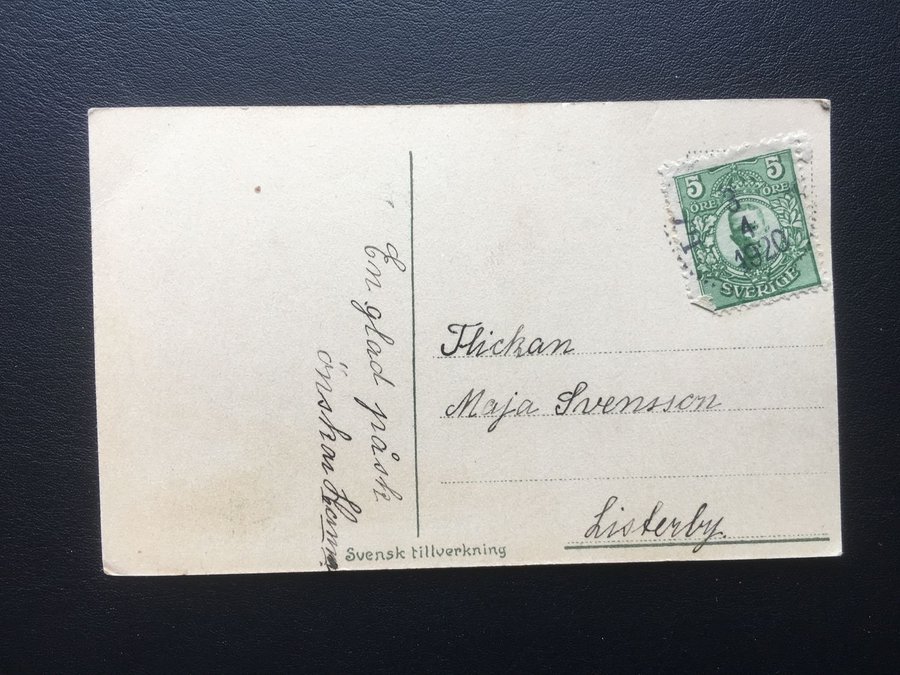 En glad påsk
önskar Hanna
5 5
ÖRE ÖRE
3
4
1920
SVERIGE
Flickan
Maja Svensson
Listerby.
Svensk tillverkning